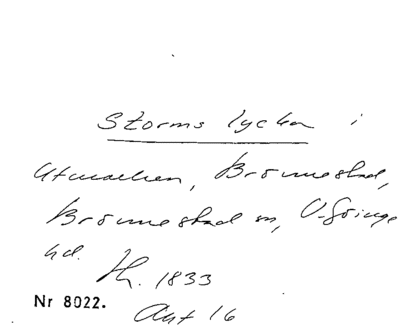 Storms lyckan i
Utmarken, Brönnestad,
Brönnestad sn, V. Göinge
hd. Th. 1833
Nr 8022.
Akt 16